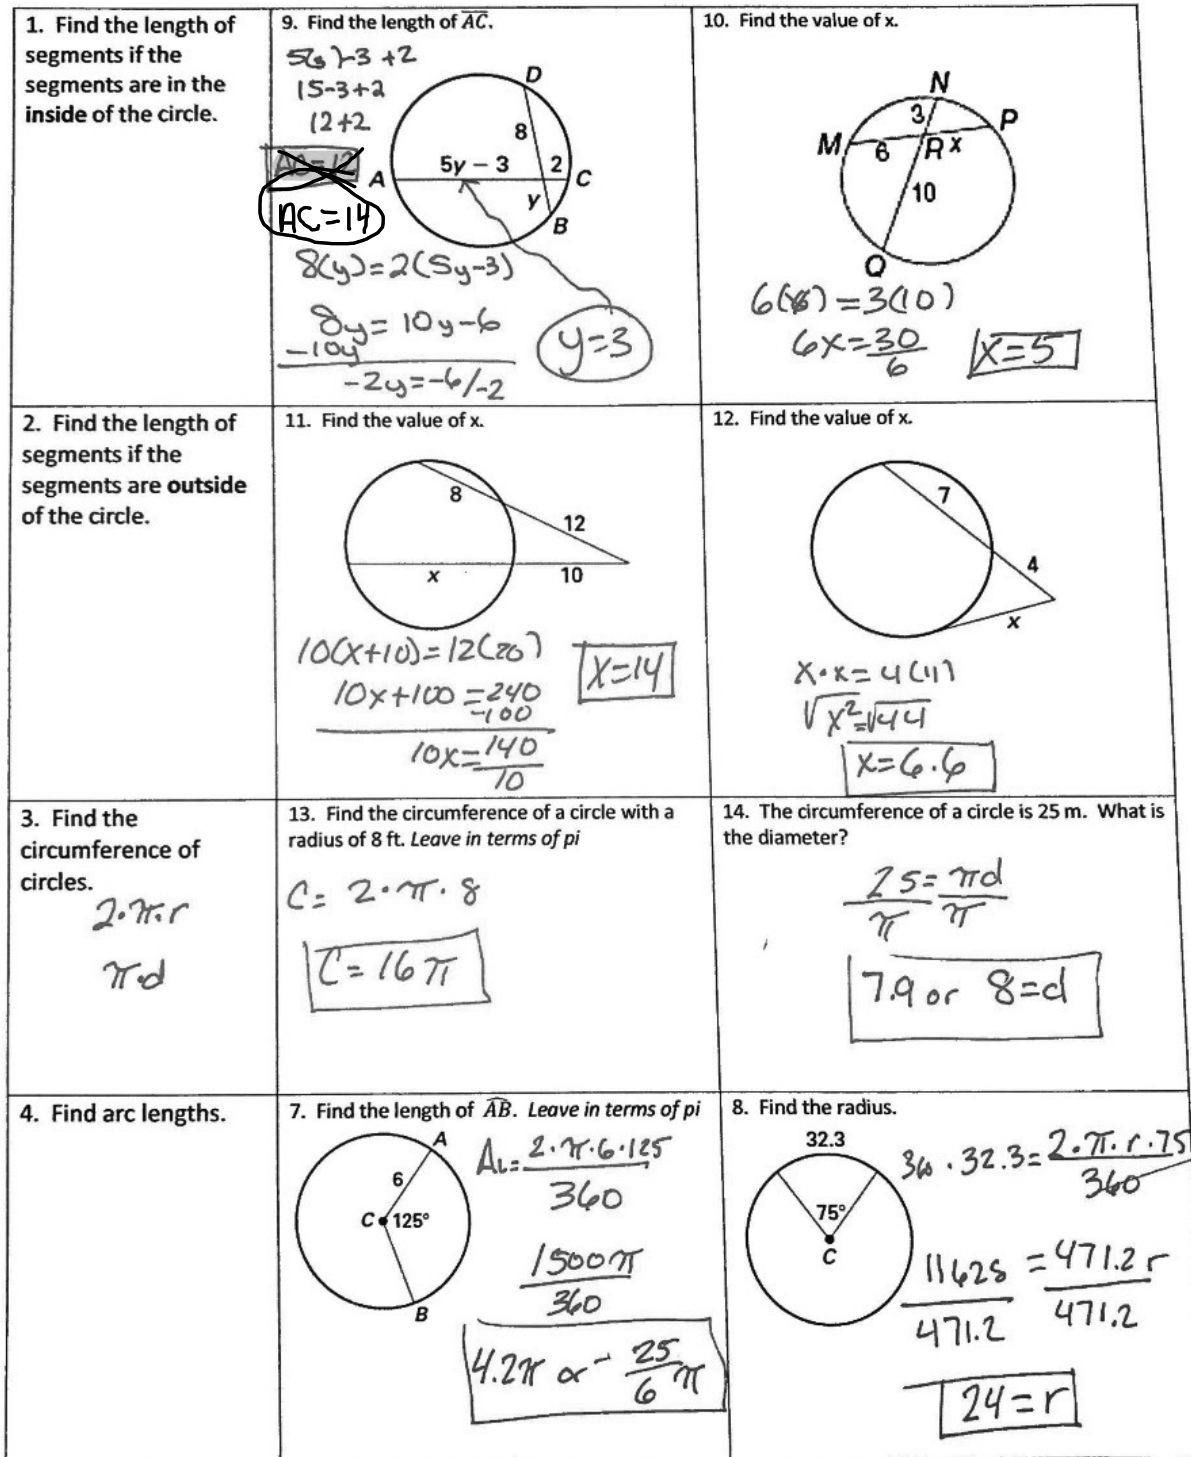 1. Find the length of
segments if the
segments are in the
inside of the circle.
9. Find the length of AC.
5(3)-3+2
15-3+2
12+2
AC=12
AC=14
D
8
5y – 3
2
A
C
y
B
8(y)=2(5y-3)
8y=10y-6
-10y
-2y=-6/-2
y=3
10. Find the value of x.
N
3
P
M
6
R
x
10
Q
6(x)=3(10)
6x=30
6
x=5
2. Find the length of
segments if the
segments are outside
of the circle.
11. Find the value of x.
8
12
x
10
10(x+10)=12(20)
10x+100=240
-100
10x=140
10
x=14
12. Find the value of x.
7
4
x
x·x=4(11)
√x²=√44
x=6.6
3. Find the
circumference of
circles.
2·π·r
π·d
13. Find the circumference of a circle with a
radius of 8 ft. Leave in terms of pi
C= 2·π·8
C=16π
14. The circumference of a circle is 25 m. What is
the diameter?
25=πd
π π
7.9 or 8=d
4. Find arc lengths.
7. Find the length of AB. Leave in terms of pi
A
6
C
125°
B
AL=2·π·6·125
360
1500π
360
4.2π or 25/6 π
8. Find the radius.
32.3
75°
C
360·32.3=2·π·r·75
360
11628=471.2r
471.2 471.2
24=r